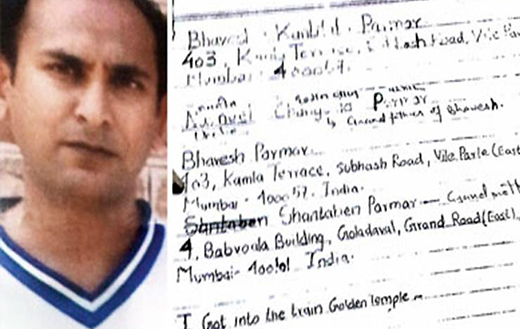 Bhavesh Kantilal Parmar
403, Kamla Terrace, Subhash Road, Vile Par
Mumbai - 400057.
Parmar
Grand father of Bhavesh.
Bhavesh Parmar
403, Kamla Terrace, Subhash Road, Vile Parle (East
Mumbai - 400057. India.
Shantaben Shantaben Parmar — Grand moth
4, Babvoola Building, Goladaval, Grand Road (East)
Mumbai - India.
I Got into the train Golden temple